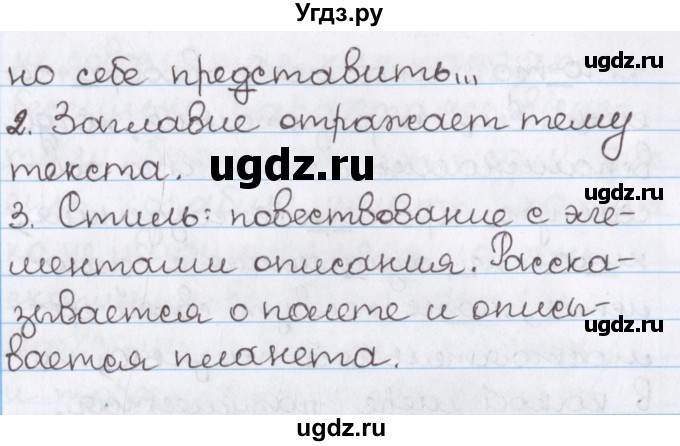 Угдз.ру
ugdz.ru
но себе представить...
ugdz.ru
2. Заглавие отражает тему
текста.
ugdz.ru
3. Стиль: повествование с эле-
ментами описания. Расска-
ugdz.ru
зывается о полете и описы-
ugdz.ru
вается планета.
ugdz.ru
ugdz.ru